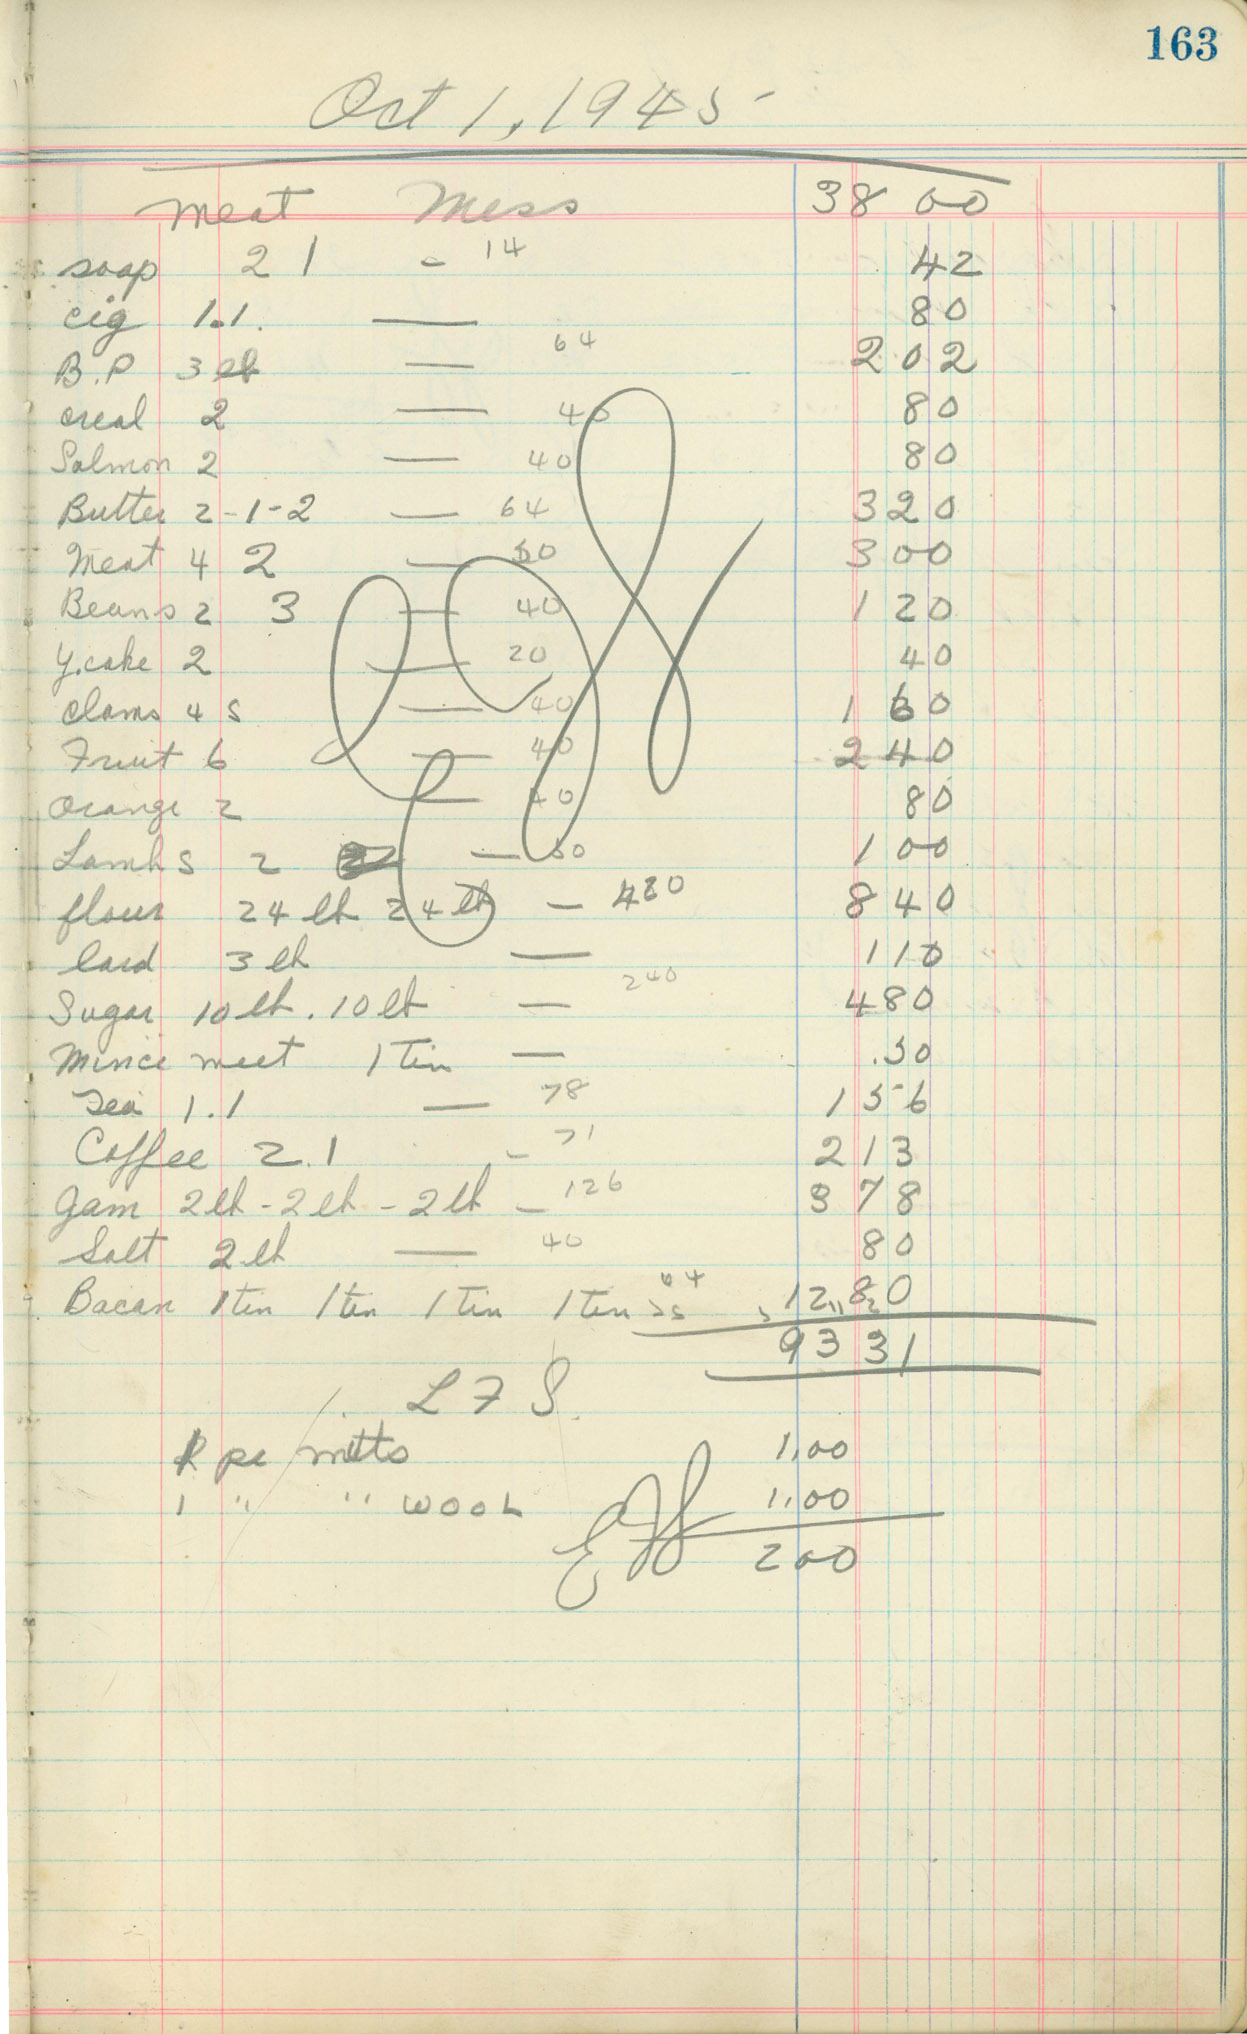 163
Oct 1, 1945
Meat Mess 38 00
soap 2 1 - 14 42
cig 1.1. — 80
B.P 3 lb — 64 2 02
creal 2 — 40 80
Salmon 2 — 40 80
Butter 2-1-2 — 64 3 20
Meat 4 2 — 50 3 00
Beans 2 3 — 40 1 20
Y.cake 2 — 20 40
Clams 4 5 — 40 1 60
Fruit 6 — 40 2 40
Orange 2 — 40 80
Lambs 2 — 50 1 00
flour 24 lb 24 lb — 420 8 40
lard 3 lb — 1 10
Sugar 10 lb. 10 lb — 240 4 80
Mince meet 1 Tin — .50
Tea 1.1 — 78 1 56
Coffee 2.1 - 71 2 13
Jam 2 lb - 2 lb - 2 lb - 126 3 78
Salt 2 lb — 40 80
Bacan 1 tin 1 tin 1 tin 1 tin 64 12 80
93 31
L F S.
pr mitts 1.00
1 " " wool 1.00
2 00